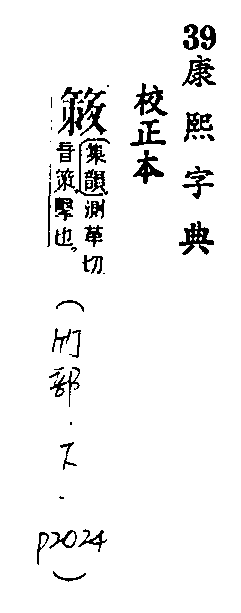 39康熙字典
校正本
集韻測革切
音策擊也。
(竹部.下.p2024)